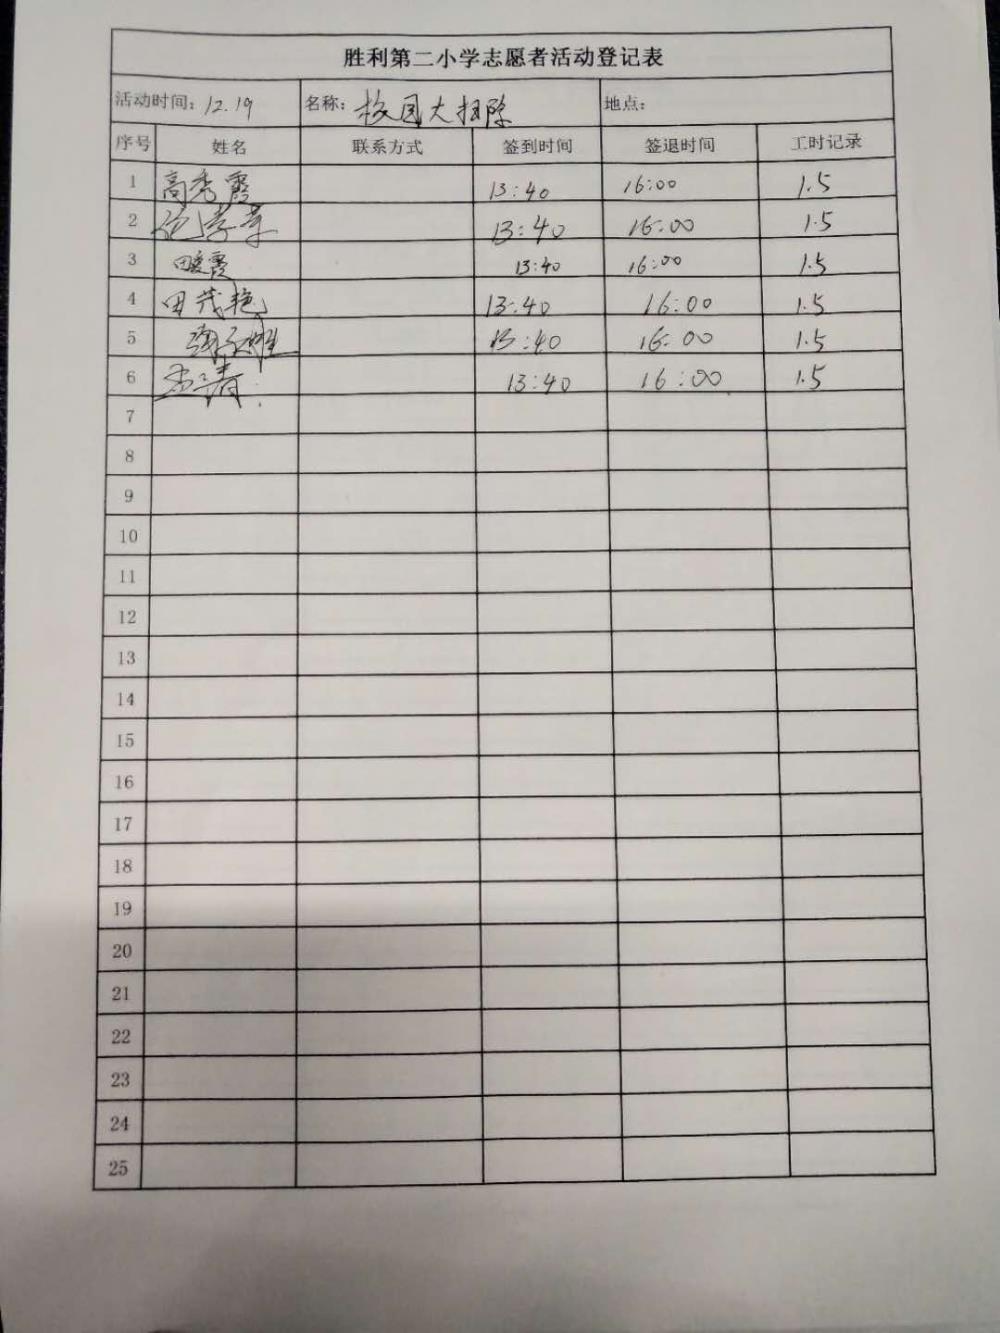 胜利第二小学志愿者活动登记表
活动时间：12.19 名称：校园大扫除 地点：
序号 姓名 联系方式 签到时间 签退时间 工时记录
1 高秀霞 13:40 16:00 1.5
2 13:40 16:00 1.5
3 霞 13:40 16:00 1.5
4 田茂艳 13:40 16:00 1.5
5 13:40 16:00 1.5
6 13:40 16:00 1.5
7
8
9
10
11
12
13
14
15
16
17
18
19
20
21
22
23
24
25